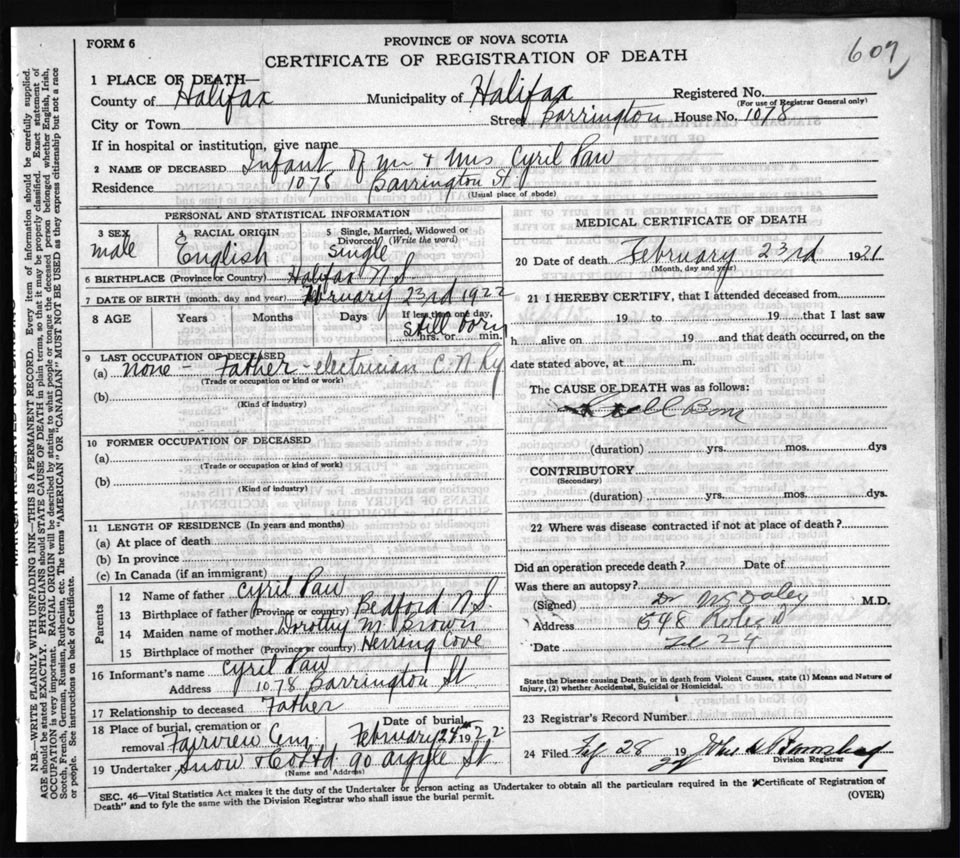 FORM 6
PROVINCE OF NOVA SCOTIA
CERTIFICATE OF REGISTRATION OF DEATH
609
1 PLACE OF DEATH—
County of Halifax Municipality of Halifax Registered No.
(For use of Registrar General only)
City or Town Street Barrington House No. 1078
If in hospital or institution, give name
2 NAME OF DECEASED Infant of Mr & Mrs Cyril Paw
Residence 1078 Barrington St
(Usual place of abode)
PERSONAL AND STATISTICAL INFORMATION
3 SEX 4 RACIAL ORIGIN 5 Single, Married, Widowed or Divorced (Write the word)
male English Single
6 BIRTHPLACE (Province or Country) Halifax N.S.
7 DATE OF BIRTH (month, day and year) February 23rd 1922
8 AGE Years Months Days If less than one day,
Still born
hrs. or min.
9 LAST OCCUPATION OF DECEASED
(a) none - Father - electrician C. N. Ry
(Trade or occupation or kind or work)
(b)
(Kind of industry)
10 FORMER OCCUPATION OF DECEASED
(a)
(Trade or occupation or kind of work)
(b)
(Kind of industry)
11 LENGTH OF RESIDENCE (In years and months)
(a) At place of death
(b) In province
(c) In Canada (if an immigrant)
Parents
12 Name of father Cyril Paw
13 Birthplace of father (Province or country) Bedford N.S.
14 Maiden name of mother Dorothy M. Brown
15 Birthplace of mother (Province or country) Herring Cove
16 Informant's name Cyril Paw
Address 1078 Barrington St
17 Relationship to deceased Father
18 Place of burial, cremation or removal Fairview Cem Date of burial February 24th 1922
19 Undertaker Snow & Co Ltd 90 Argyle St.
(Name and Address)
MEDICAL CERTIFICATE OF DEATH
20 Date of death February 23rd 1921
(Month, day and year)
21 I HEREBY CERTIFY, that I attended deceased from
19 to 19 that I last saw
h alive on 19 and that death occurred, on the
date stated above, at m.
The CAUSE OF DEATH was as follows:
Still Born
(duration) yrs. mos. dys
CONTRIBUTORY
(Secondary)
(duration) yrs. mos. dys.
22 Where was disease contracted if not at place of death?
Did an operation precede death? Date of
Was there an autopsy?
(Signed) Dr Daley M.D.
Address 548
Date Feb 24
State the Disease causing Death, or in death from Violent Causes, state (1) Means and Nature of
Injury, (2) whether Accidental, Suicidal or Homicidal.
23 Registrar's Record Number
24 Filed Feb 28 19 22
Division Registrar
SEC. 46—Vital Statistics Act makes it the duty of the Undertaker or person acting as Undertaker to obtain all the particulars required in the "Certificate of Registration of
Death" and to fyle the same with the Division Registrar who shall issue the burial permit. (OVER)
N.B.—WRITE PLAINLY WITH UNFADING INK—THIS IS A PERMANENT RECORD. Every item of information should be carefully supplied.
AGE should be stated EXACTLY. PHYSICIANS should STATE CAUSE OF DEATH in plain terms, so that it may be properly classified. Exact statement of
OCCUPATION is very important. RACIAL ORIGIN will be described by stating to what people or tongue the deceased person belonged whether English, Irish,
Scotch, French, German, Russian, Ruthenian, etc. The terms "AMERICAN" or "CANADIAN" MUST NOT BE USED as they express citizenship but not a race
or people. See instructions on back of Certificate.